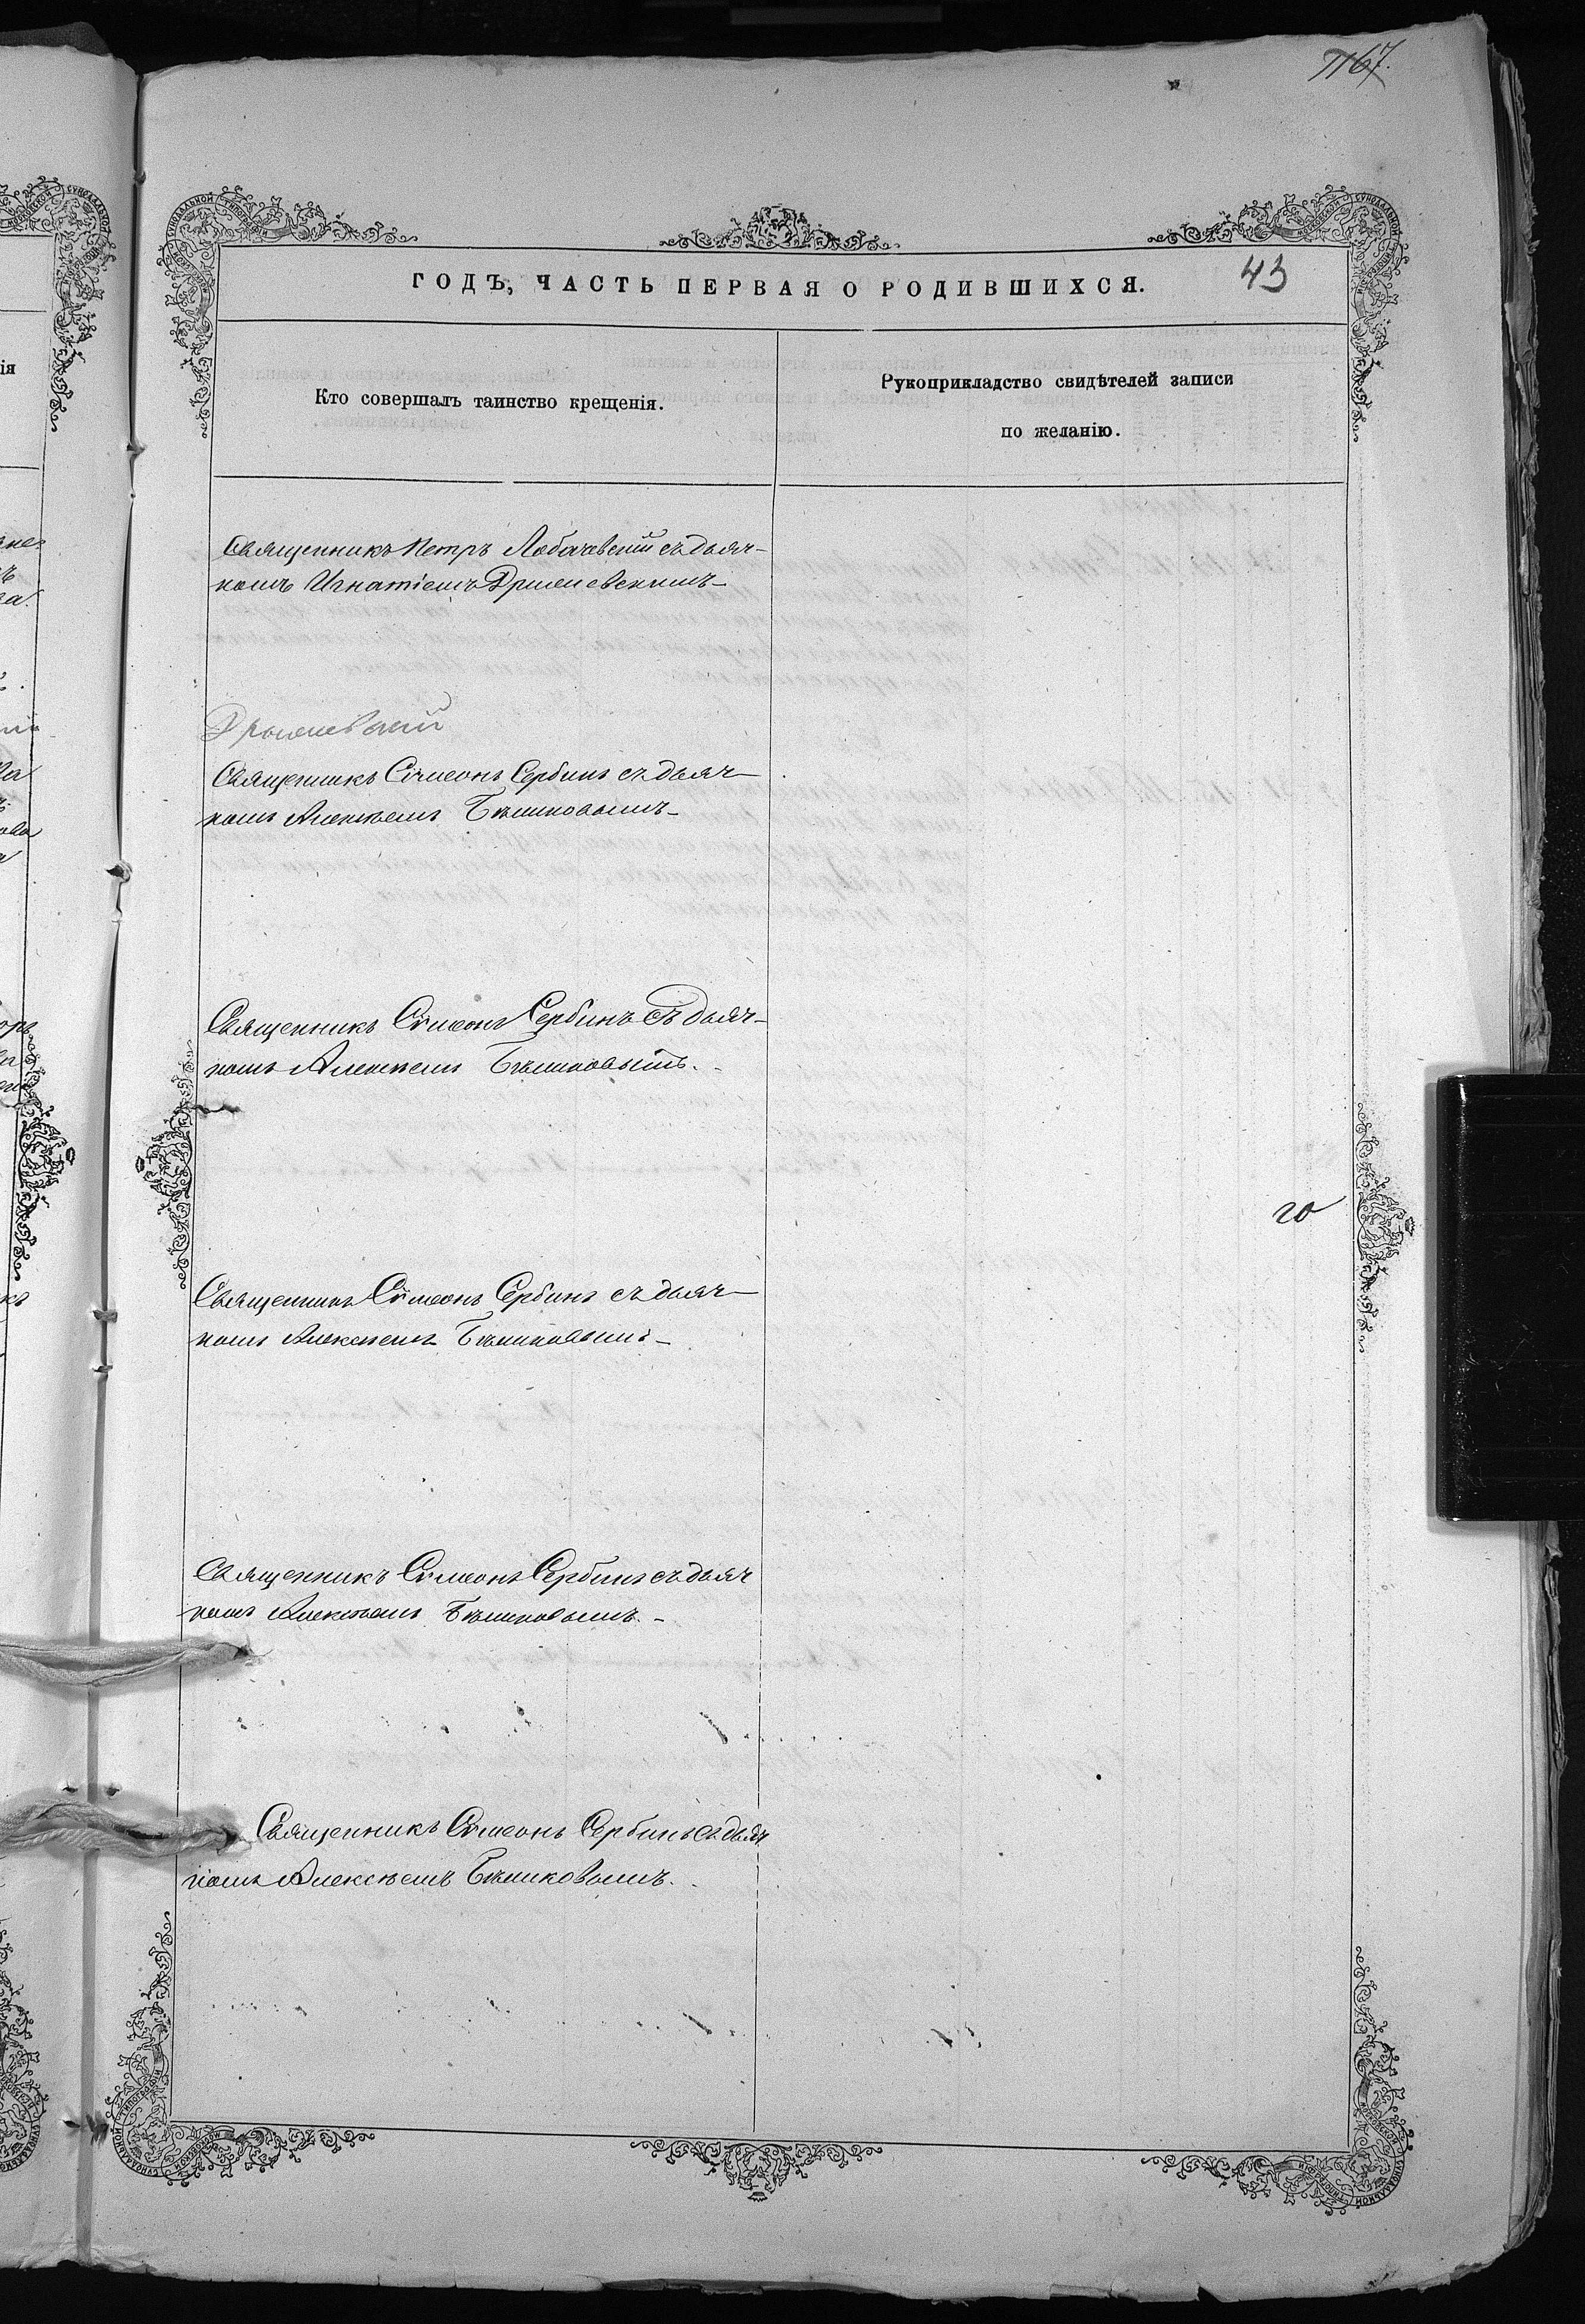 167.
ГОДЪ, ЧАСТЬ ПЕРВАЯ О РОДИВШИХСЯ.
43
Кто совершалъ таинство крещенія.
Рукоприкладство свидѣтелей записи
по желанію.
Священникъ Петръ Лобачевскій съ дьяч-
комъ Игнатіемъ
Священникъ Сѵмеонъ Сербинъ съ дьяч-
комъ Алексѣемъ Бѣликовымъ
Священникъ Сѵмеонъ Сербинъ съ дьяч-
комъ Алексѣемъ Бѣликовымъ.
20
Священникъ Сѵмеонъ Сербинъ съ дьяч-
комъ Алексѣемъ Бѣликовымъ
Священникъ Сѵмеонъ Сербинъ съ дьяч
комъ Алексѣемъ Бѣликовымъ.
Священникъ Сѵмеонъ Сербинъ съ дьяч
комъ Алексѣемъ Бѣликовымъ.